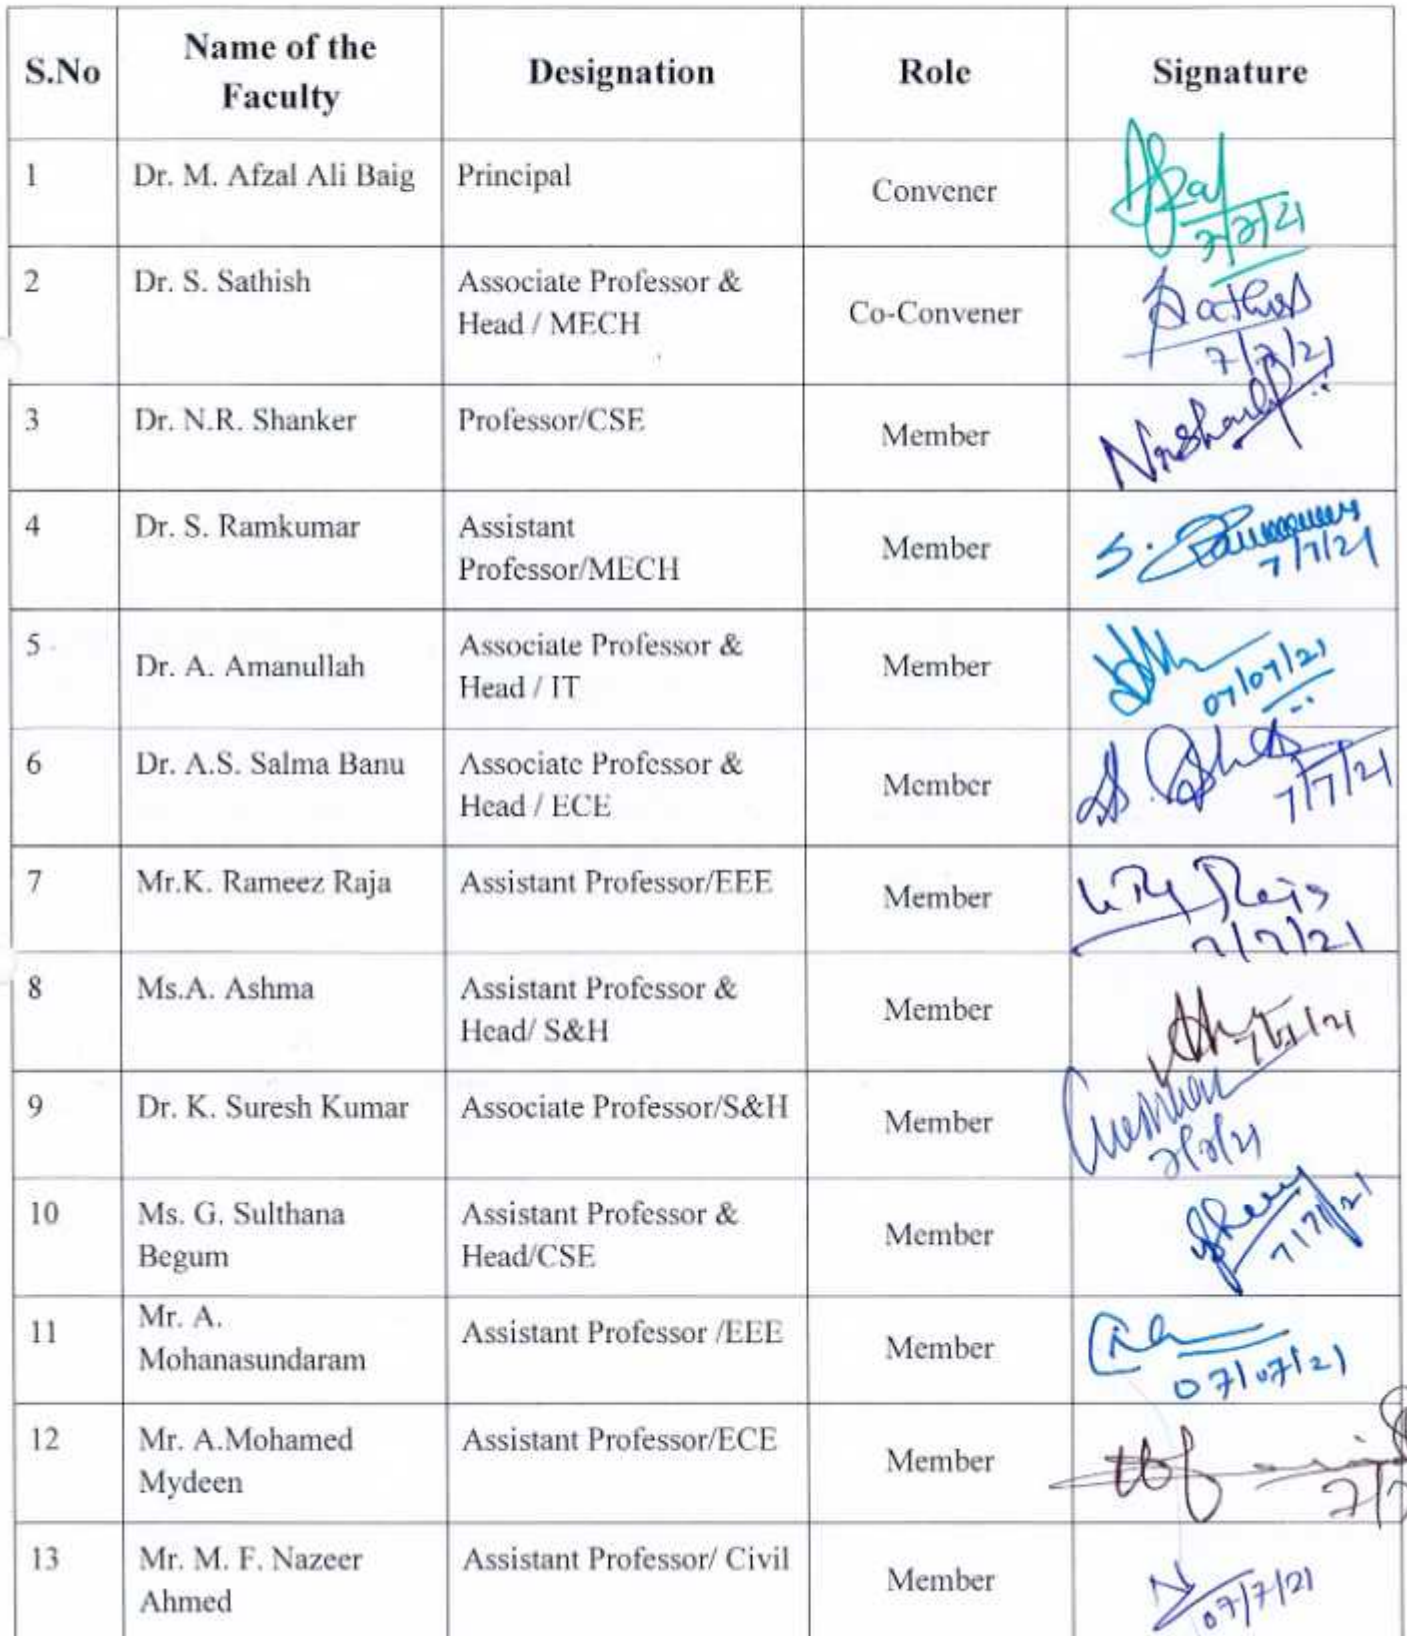 S.No
Name of the
Faculty
Designation
Role
Signature
1
Dr. M. Afzal Ali Baig
Principal
Convener
Afzal
7/7/21
2
Dr. S. Sathish
Associate Professor &
Head / MECH
Co-Convener
7/7/21
3
Dr. N.R. Shanker
Professor/CSE
Member
4
Dr. S. Ramkumar
Assistant
Professor/MECH
Member
7/7/21
5
Dr. A. Amanullah
Associate Professor &
Head / IT
Member
07/07/21
6
Dr. A.S. Salma Banu
Associate Professor &
Head / ECE
Member
7/7/21
7
Mr.K. Rameez Raja
Assistant Professor/EEE
Member
7/7/21
8
Ms.A. Ashma
Assistant Professor &
Head/ S&H
Member
7/7/21
9
Dr. K. Suresh Kumar
Associate Professor/S&H
Member
7/7/21
10
Ms. G. Sulthana
Begum
Assistant Professor &
Head/CSE
Member
7/7/21
11
Mr. A.
Mohanasundaram
Assistant Professor /EEE
Member
07/07/21
12
Mr. A.Mohamed
Mydeen
Assistant Professor/ECE
Member
13
Mr. M. F. Nazeer
Ahmed
Assistant Professor/ Civil
Member
07/7/21